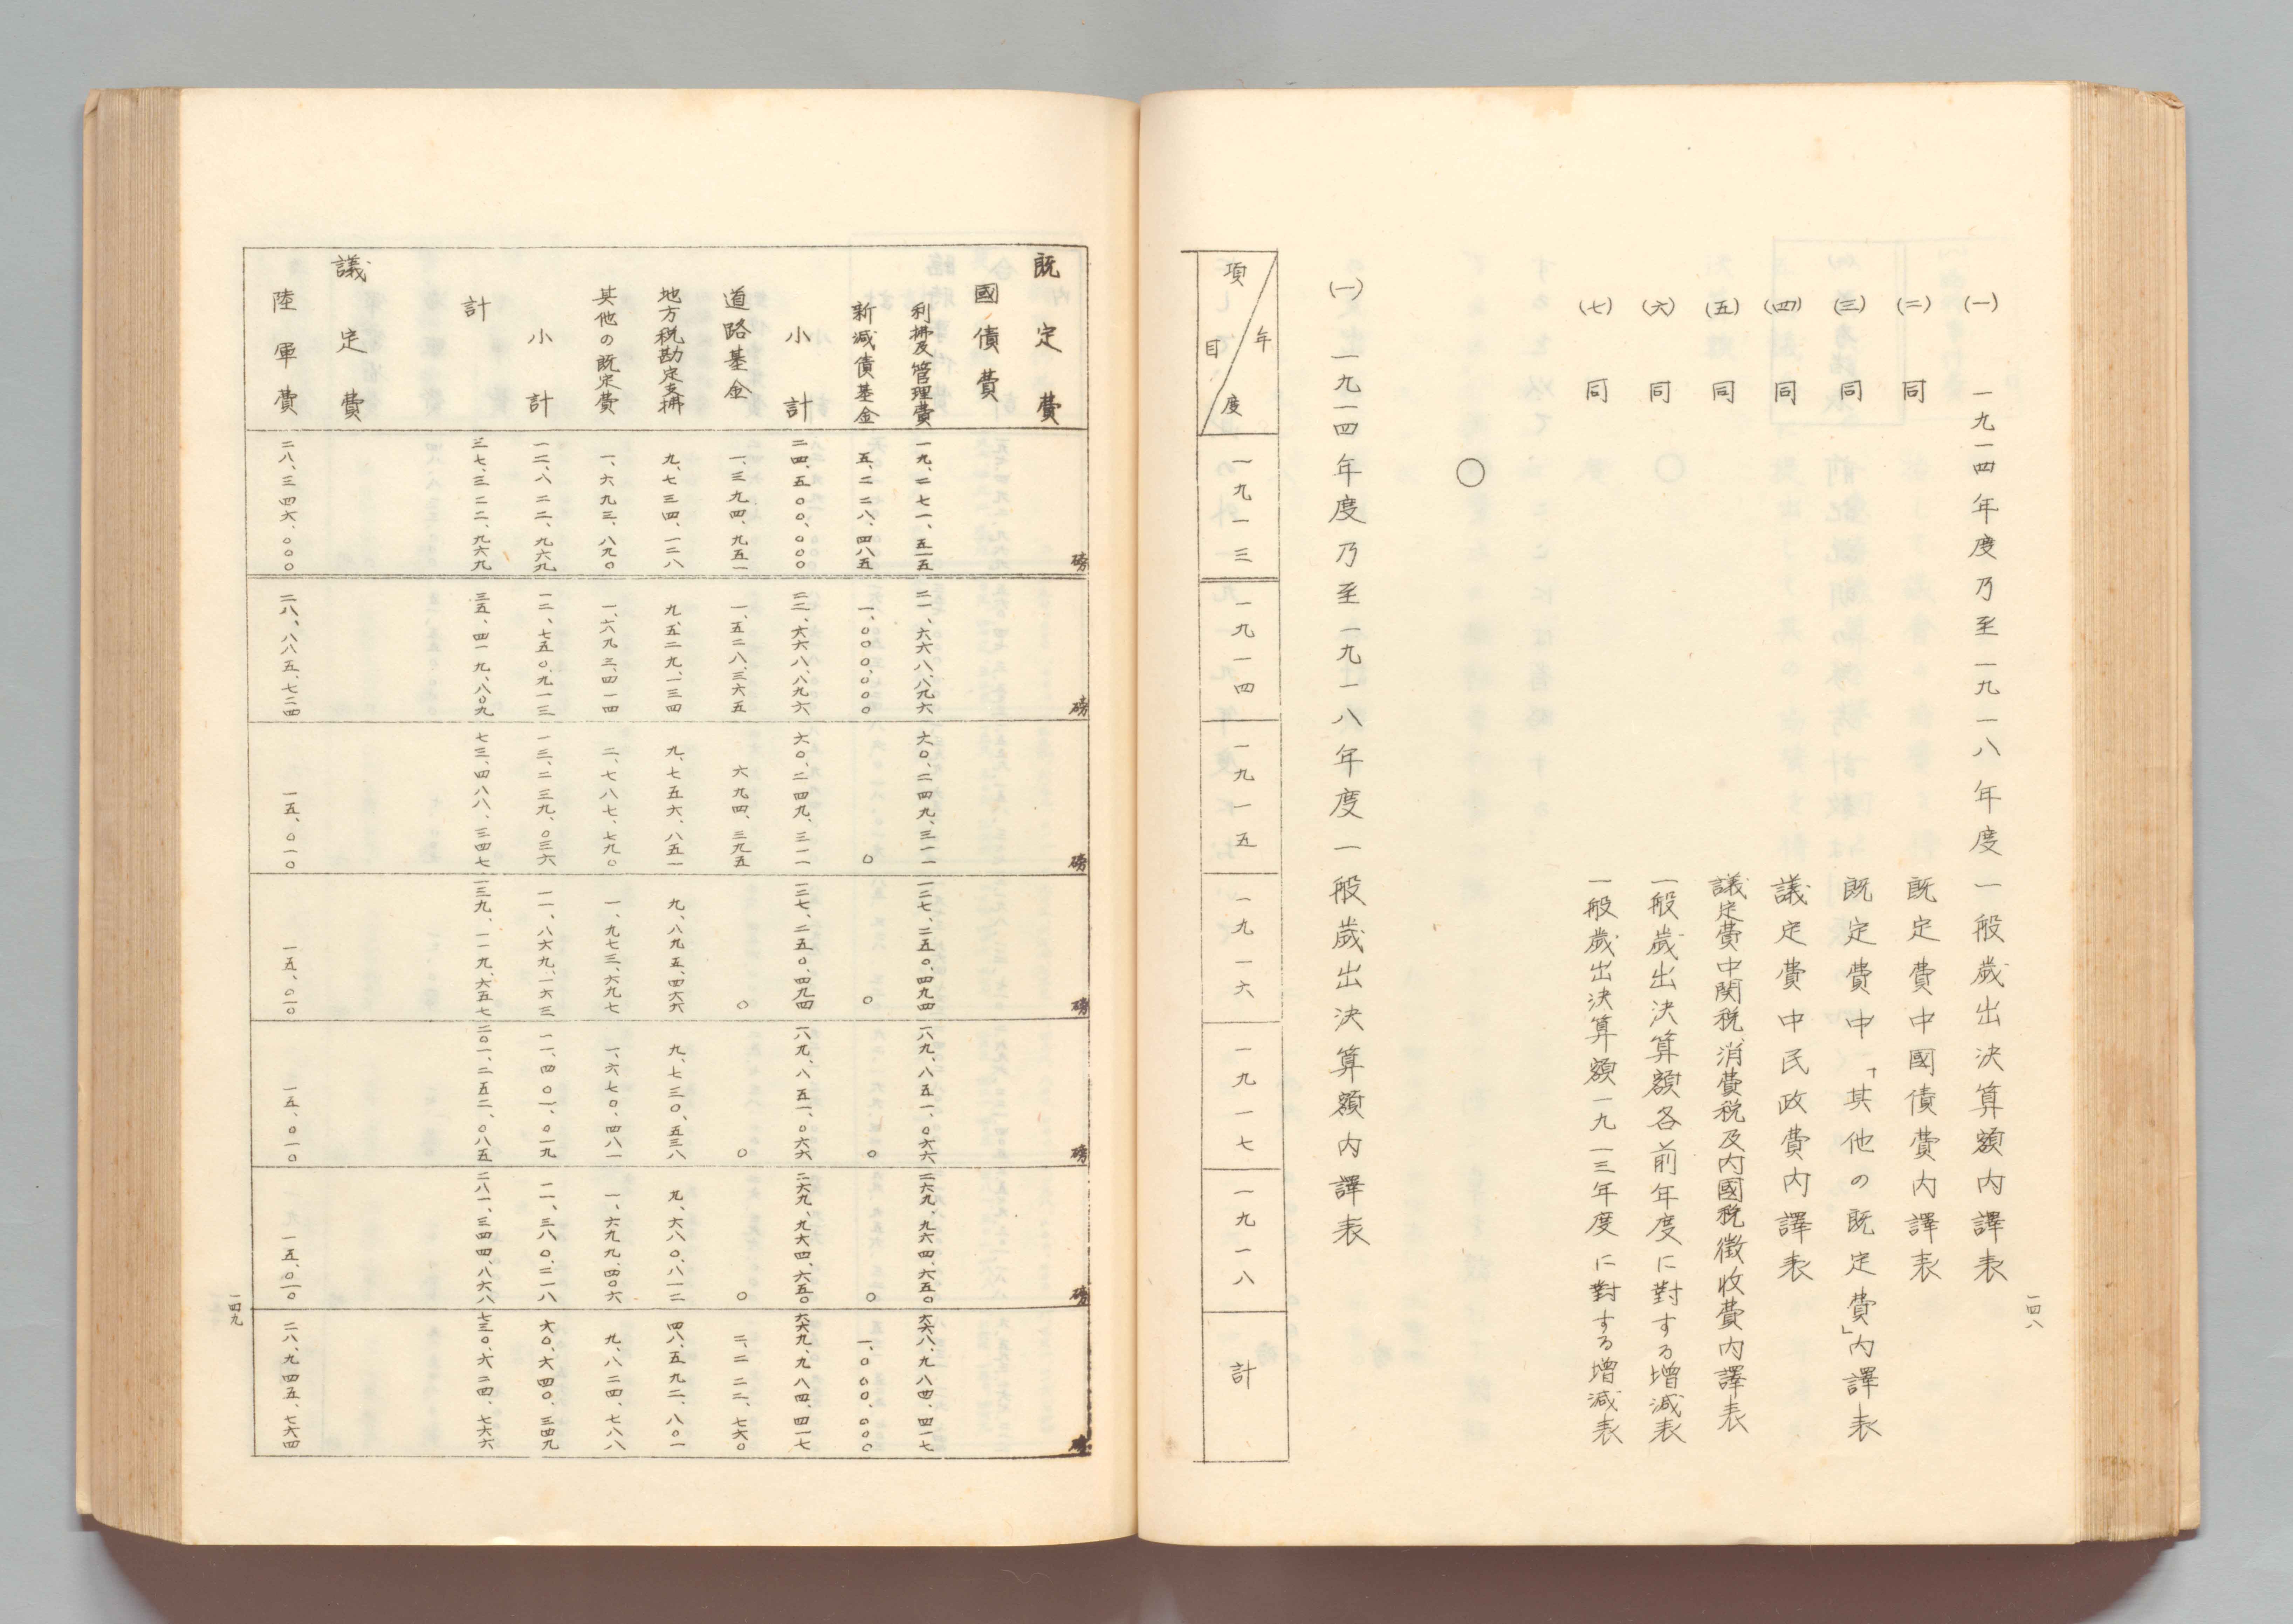 一四八
(一) 一九一四年度乃至一九一八年度一般歲出決算額内譯表
(二) 同 既定費中國債費内譯表
(三) 同 既定費中「其他の既定費」内譯表
(四) 同 議定費中民政費内譯表
(五) 同 議定費中関税消費税及内國税徴收費内譯表
(六) 同 一般歲出決算額各前年度に對する増減表
(七) 同 一般歲出決算額一九一三年度に對する増減表
〇
(一) 一九一四年度乃至一九一八年度一般歲出決算額内譯表
年度 項目 一九一三 一九一四 一九一五 一九一六 一九一七 一九一八 計
既定費 磅 磅 磅 磅 磅 磅 磅
國債費
利拂及管理費 一九、二七一、五一五 二一、六六八、八九六 六〇、二四九、三一一 一二七、二五〇、四九四 一八九、八五一、〇六六 二六九、九六四、六五〇 六六八、九八四、四一七
新減債基金 五、二二八、四八五 一、〇〇〇、〇〇〇 〇 〇 〇 〇 一、〇〇〇、〇〇〇
小計 二四、五〇〇、〇〇〇 二二、六六八、八九六 六〇、二四九、三一一 一二七、二五〇、四九四 一八九、八五一、〇六六 二六九、九六四、六五〇 六六九、九八四、四一七
道路基金 一、三九四、九五一 一、五二八、三六五 六九四、三九五 〇 〇 〇 二、二二二、七六〇
地方税勘定支拂 九、七三四、一二八 九、五二九、一三四 九、七五六、八五一 九、八九五、四六六 九、七三〇、五三八 九、六八〇、八一二 四八、五九二、八〇一
其他の既定費 一、六九三、八九〇 一、六九三、四一四 二、七八七、七九〇 一、九七三、六九七 一、六七〇、四八一 一、六九九、四〇六 九、八二四、七八八
小計 一二、八二二、九六九 一二、七五〇、九一三 一三、二三九、〇三六 一一、八六九、一六三 一一、四〇一、〇一九 一一、三八〇、二一八 六〇、六四〇、三四九
計 三七、三二二、九六九 三五、四一九、八〇九 七三、四八八、三四七 一三九、一一九、六五七 二〇一、二五二、〇八五 二八一、三四四、八六八 七三〇、六二四、七六六
議定費
陸軍費 二八、三四六、〇〇〇 二八、八八五、七二四 一五、〇一〇 一五、〇一〇 一五、〇一〇 一五、〇一〇 二八、九四五、七六四
一四九